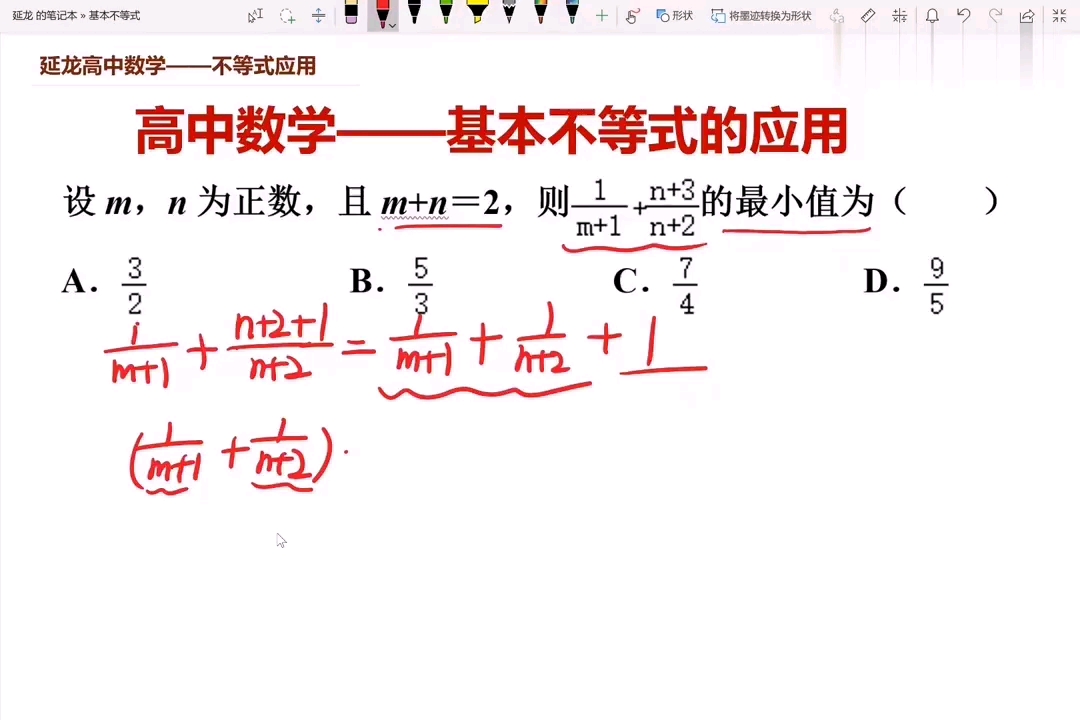 延龙 的笔记本 » 基本不等式
形状 将墨迹转换为形状
延龙高中数学——不等式应用
高中数学——基本不等式的应用
设 m，n 为正数，且 m+n＝2，则 1/(m+1) + (n+3)/(n+2) 的最小值为（　　）
A． 3/2 B． 5/3 C． 7/4 D． 9/5
1/(m+1) + (n+2+1)/(n+2) = 1/(m+1) + 1/(n+2) + 1
(1/(m+1) + 1/(n+2)) ·